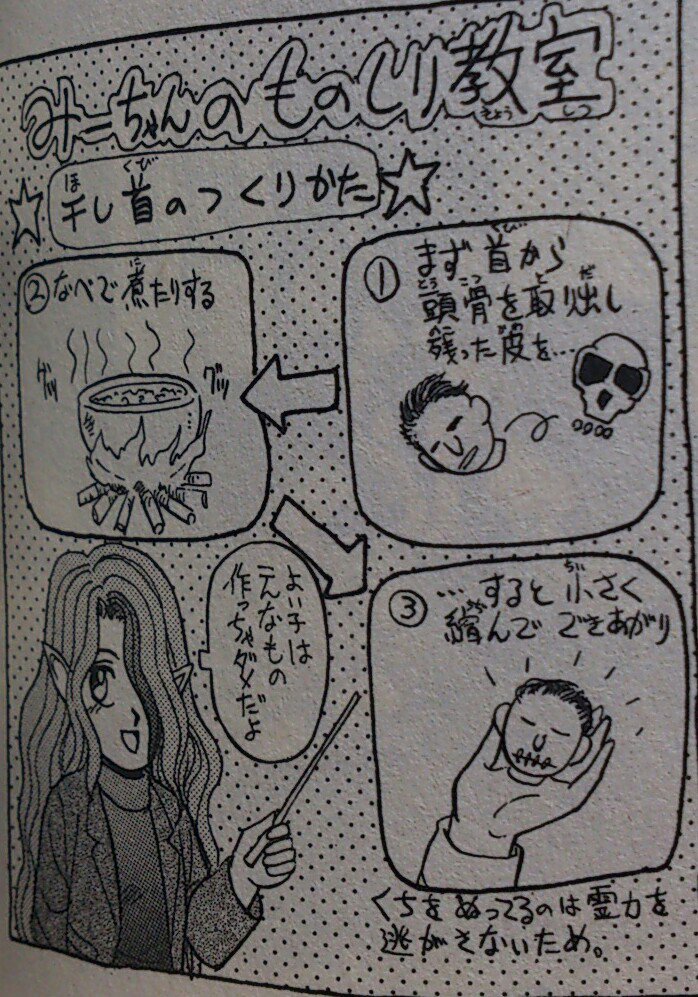 みーちゃんのものしり教室
干し首のつくりかた
①まず首から
頭骨を取り出し
残った皮を…
②なべで煮たりする
グツ
グツ
③…すると小さく
縮んでできあがり
よい子は
こんなもの
作っちゃダメだよ
くちをぬってるのは霊力を
逃がさないため。